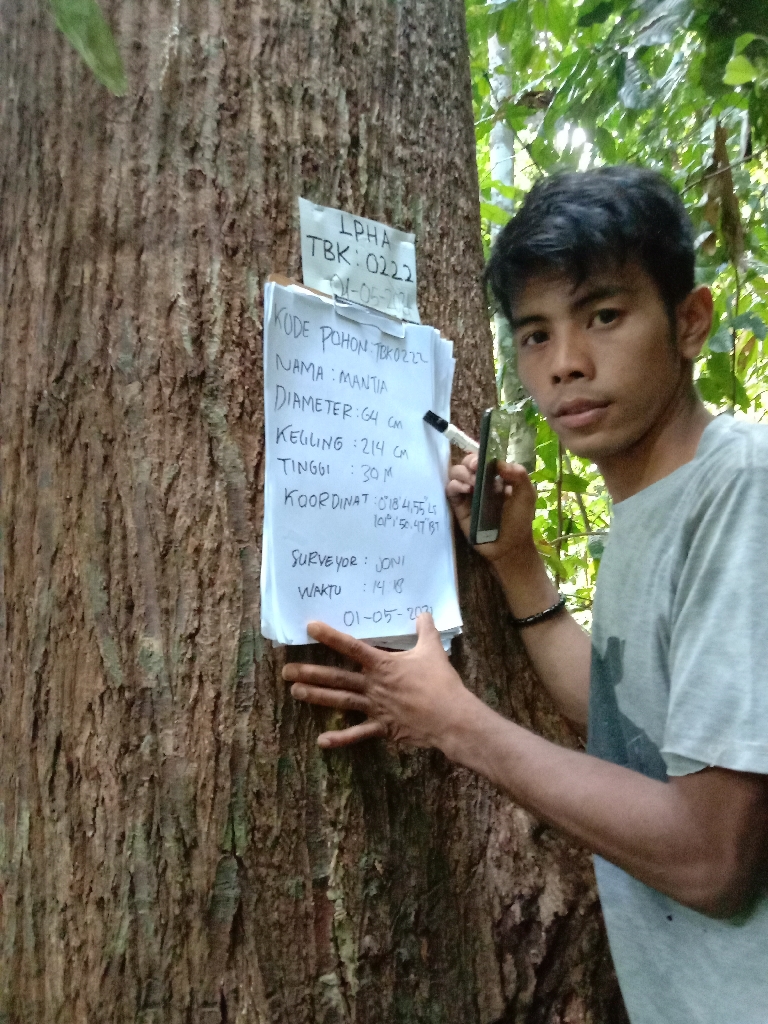 LPHA
TBK : 0222
01-05-2021
KODE POHON TBK0222
NAMA : MANTIA
DIAMETER : 64 CM
KELLING : 214 CM
TINGGI : 30 M
KOORDINAT : 0°18'4.55" LS
101°1'50.47" BT
SURVEYOR : JONI
WAKTU : 14 18
01-05-2021